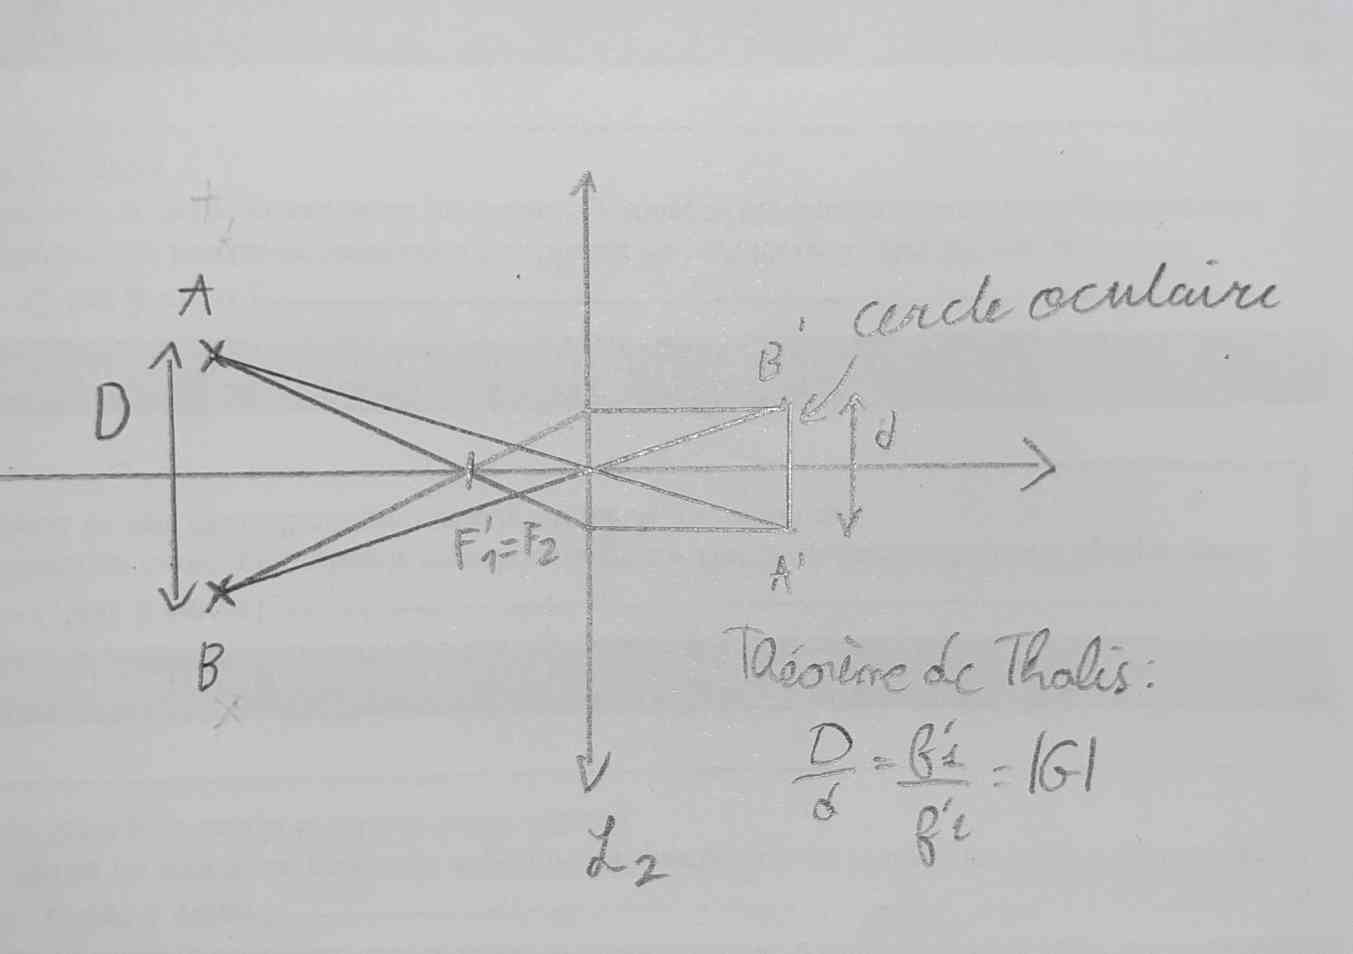 A
D
B
F'₁=F₂
B'
cercle oculaire
d
A'
L₂
Théorème de Thalès :
D/d = f'₁/f'₂ = |G|